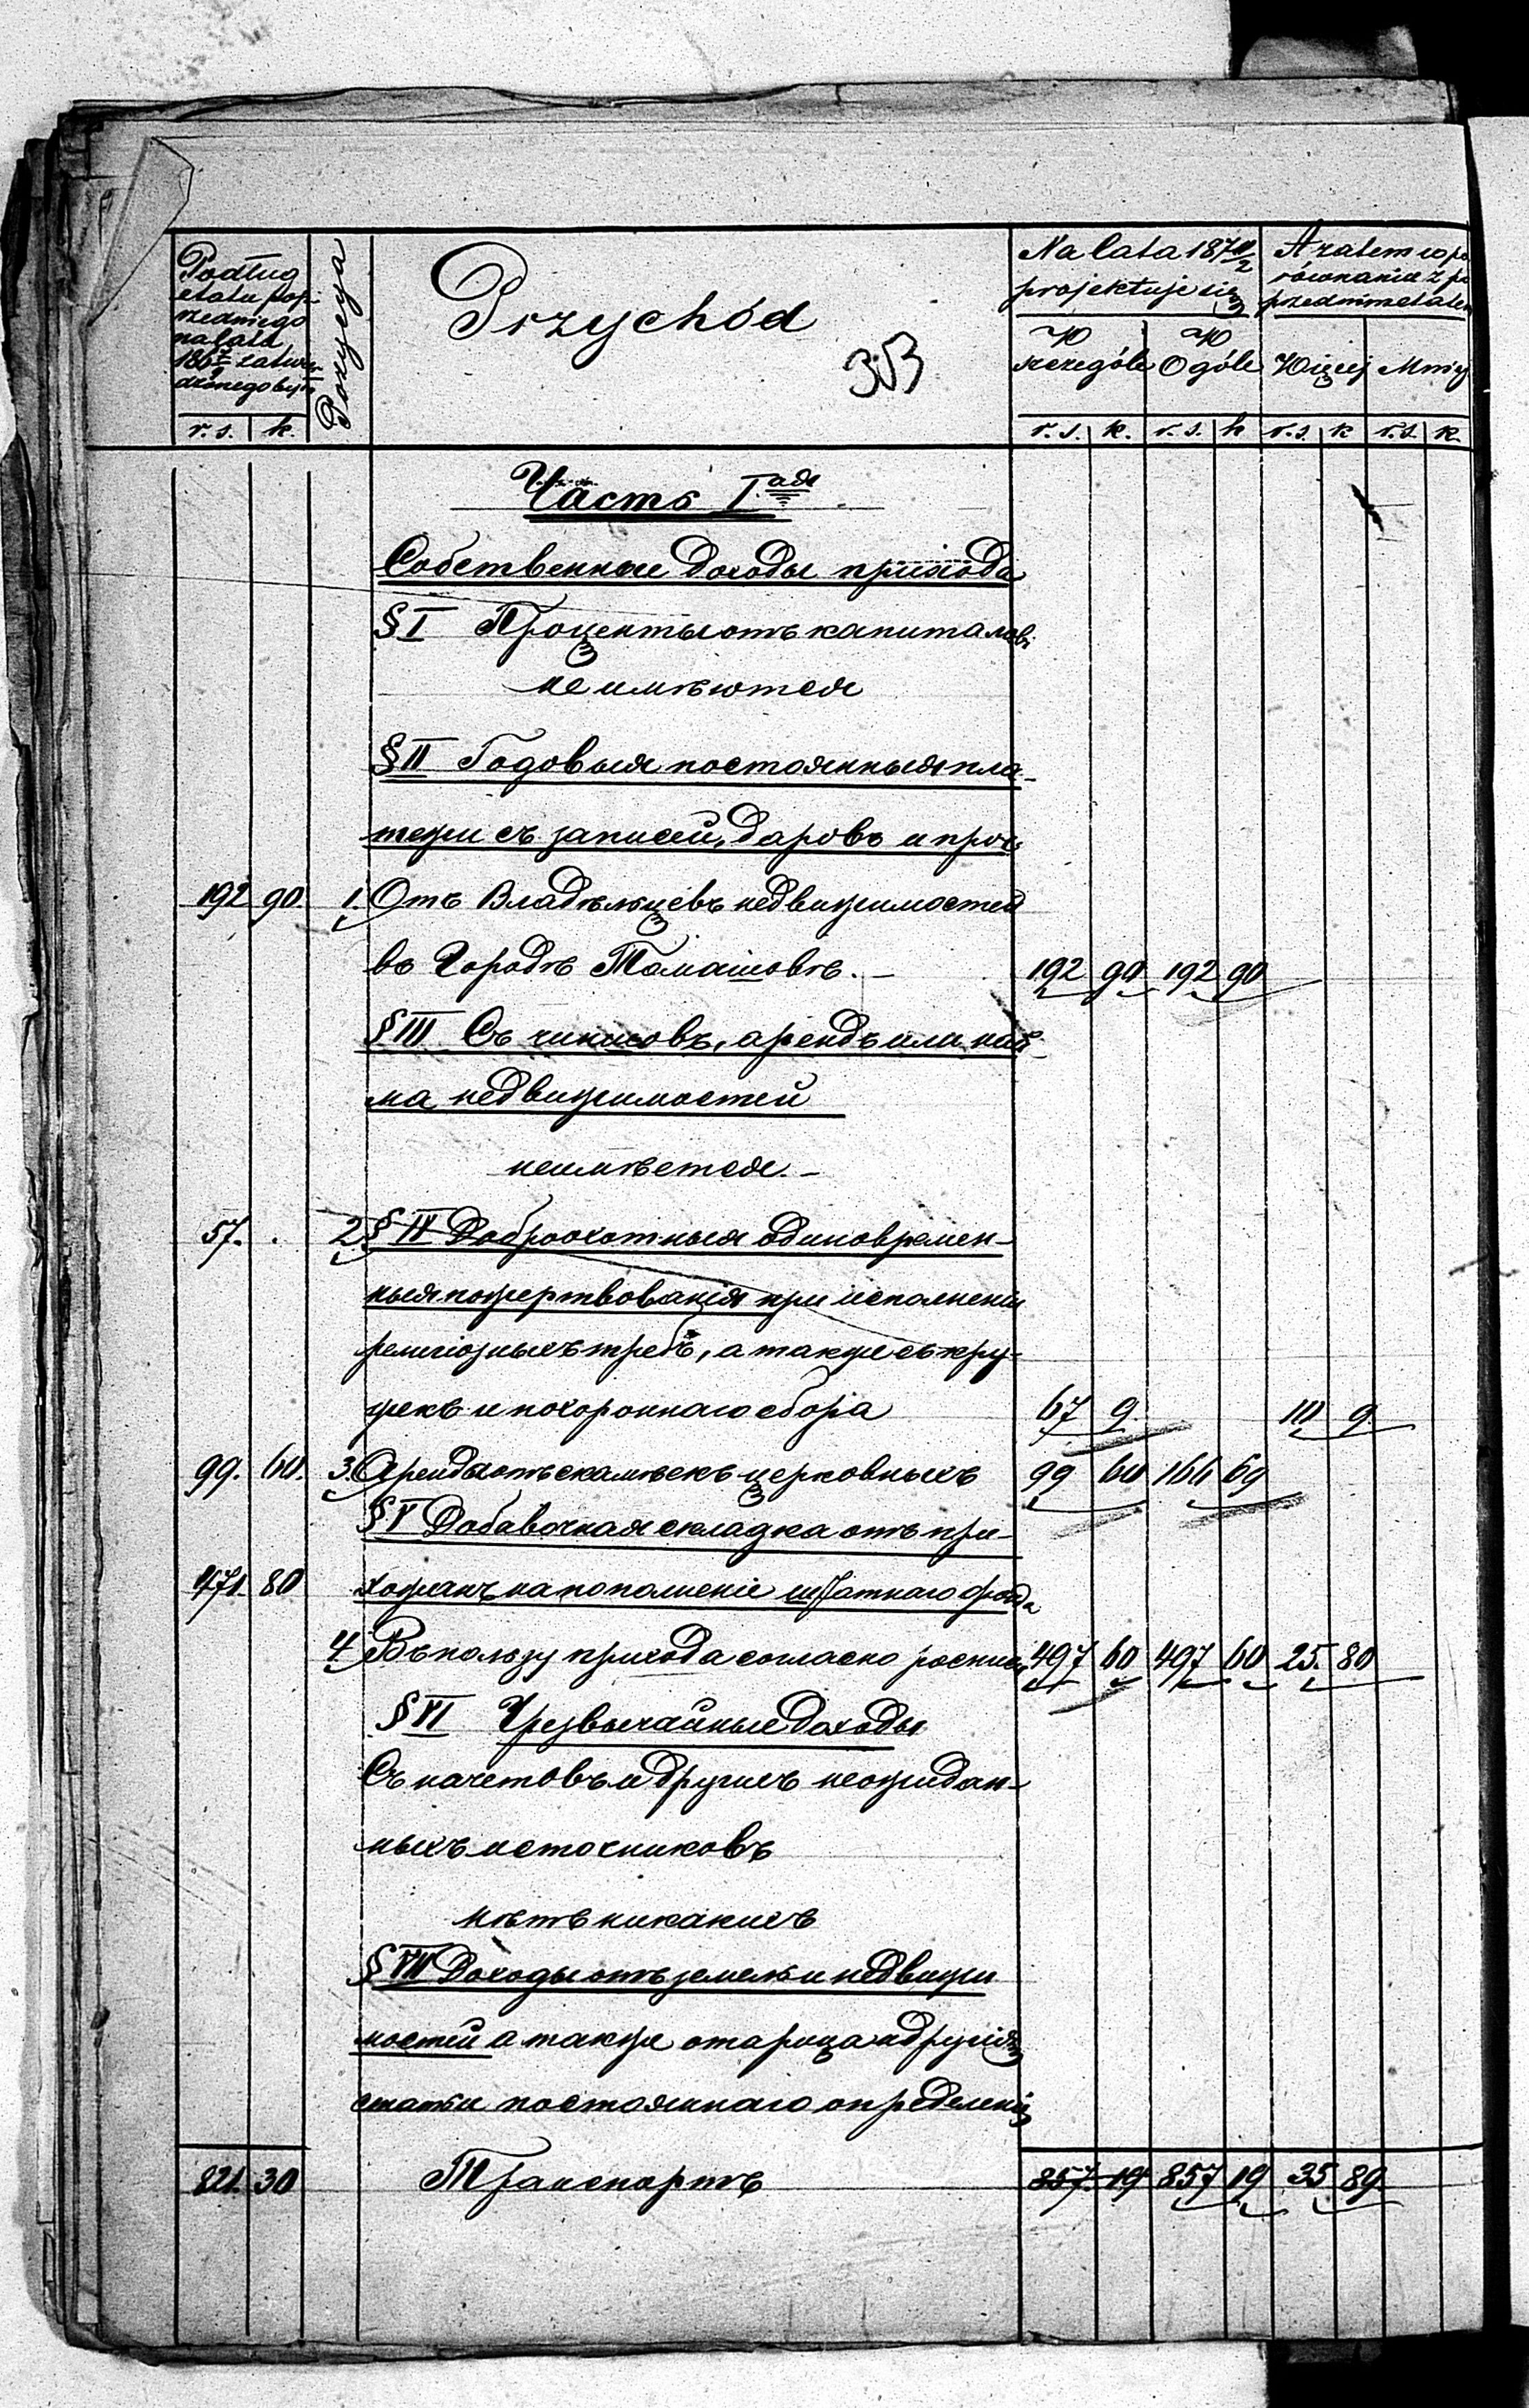 Podług
etatu pop-
rzedniego
na lata
1867/9 zatwier-
dzonego był
Pozycya
Przychód
Na lata 1870/2
projektuje się
A zatem w po
równaniu z po
przednim etatem
W
szczególe
W
Ogóle
Więcej
Mniej
r. s. k. r. s. k. r. s. k r. s. k r. s. k.
Часть I.ая
Собственные доходы прихода
§ I Проценты отъ капиталовъ
не имѣются
§ II Годовыя постоянныя пла-
тежи съ записей, даровъ и проч.
192 90. 1. Отъ Владѣльцевъ недвижимостей
въ Городѣ Томашовѣ. — 192 90 192 90
§ III Съ чиншовъ, арендъ или най-
ма недвижимостей
неимѣется. —
57. . 2. § IV Доброхотныя одиновремен-
ныя пожертвованія при исполненіи
религіозныхъ требъ, а также съ кру-
жекъ и похороннаго сбора 67 9. 10 9.
99. 60. 3. Аренды отъ скамѣекъ церковныхъ 99 60 166 69
§ V Добавочная складка отъ при-
471. 80 хожанъ на пополненіе штатнаго фонда
4. Въ пользу прихода согласно росписи 497 60 497 60 25. 80
§ VI Чрезвычайные Доходы
Съ начетовъ и другихъ неожидан-
ныхъ источниковъ
нѣтъ никакихъ
§ VII Доходы отъ земель и недвижи
мостей а также и другія
статьи постояннаго опредѣленія
821. 30 Транспортъ 857. 19 857 19 35 89